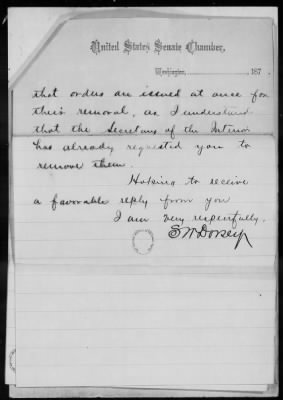 United States Senate Chamber,
Washington, 187
that orders are issued at once for
their removal, as I understand
that the Secretary of the Interior
has already requested you to
remove them.
Hoping to receive
a favorable reply from you
I am very respectfully.
S W Dorsey